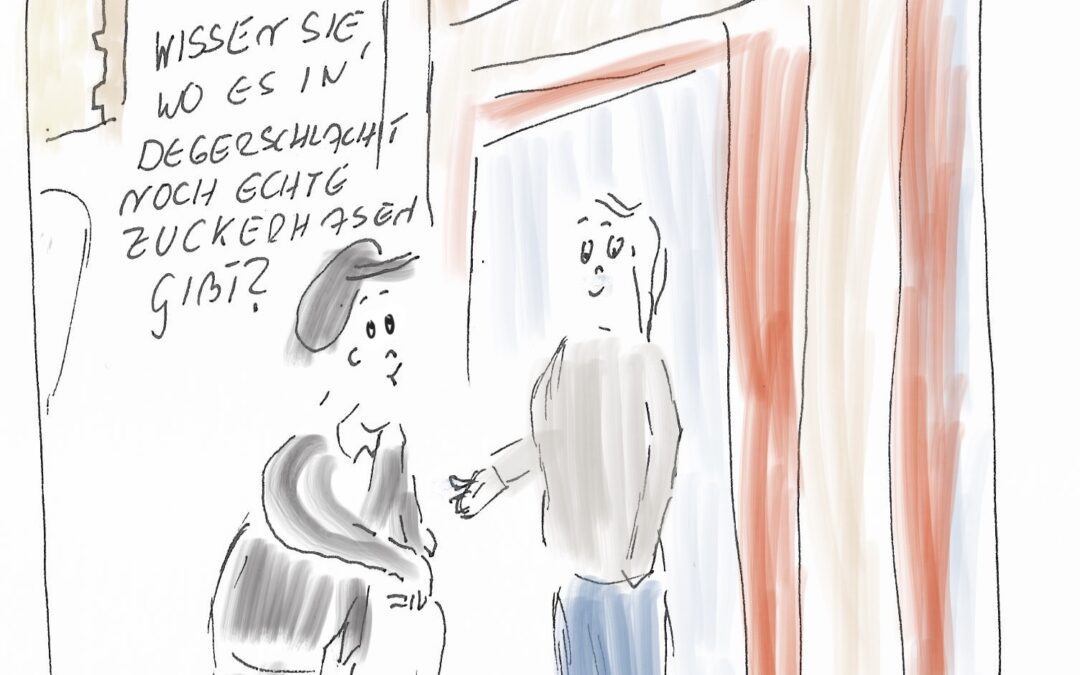 WISSEN SIE,
WO ES IN
DEGERSCHLACHT
NOCH ECHTE
ZUCKERHASEN
GIBT?